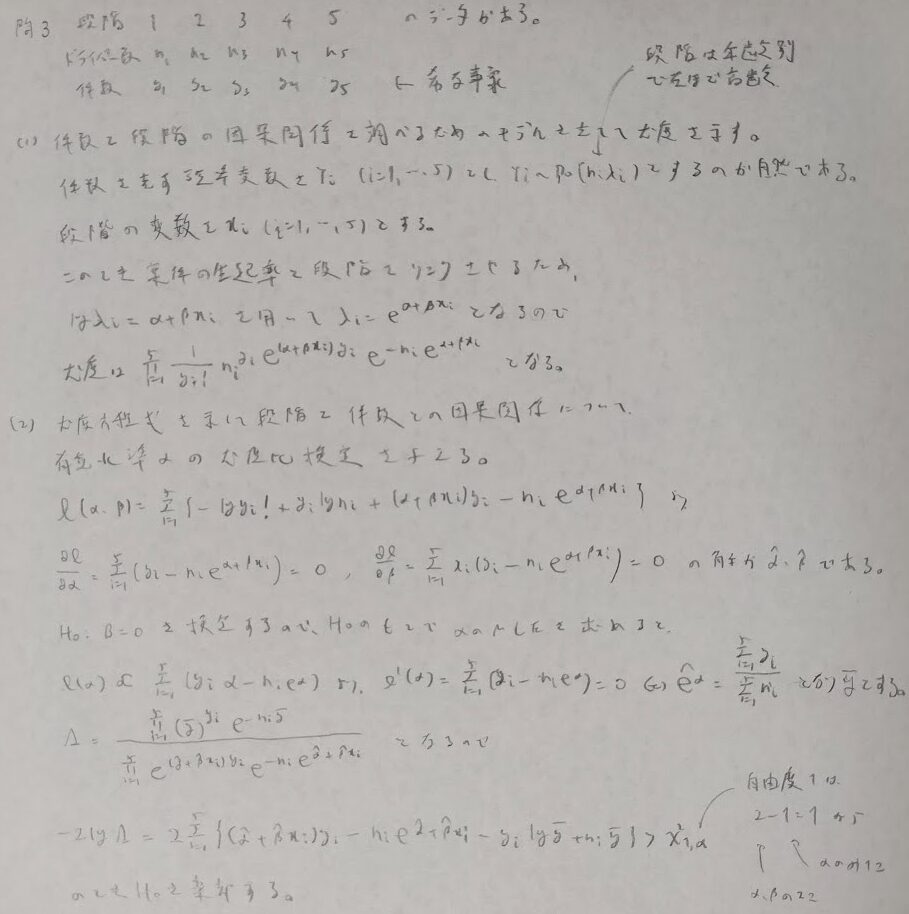 問3 段階 1 2 3 4 5 のデータがある。
ドライバー数 n₁ n₂ n₃ n₄ n₅
件数 y₁ y₂ y₃ y₄ y₅ ← 希な事象
段階は年齢別で左ほど高齢
(1) 件数と段階の因果関係を調べるためのモデルを立てて尤度を示す。
件数を表す確率変数を Yᵢ (i=1,…,5) とし Yᵢ~Po(nᵢλᵢ) とするのが自然である。
段階の変数を xᵢ (i=1,…,5) とする。
このとき事件の生起率と段階をリンクさせるため、
log λᵢ = α+βxᵢ を用いて λᵢ = e^{α+βxᵢ} となるので
尤度は ∏_{i=1}^{5} 1/yᵢ! nᵢ^{yᵢ} e^{(α+βxᵢ)yᵢ} e^{-nᵢe^{α+βxᵢ}} となる。
(2) 尤度方程式を示して段階と件数との因果関係について、
有意水準αの尤度比検定を与える。
ℓ(α,β) = Σ_{i=1}^{5} {-log yᵢ! + yᵢ log nᵢ + (α+βxᵢ)yᵢ - nᵢ e^{α+βxᵢ}} より
∂ℓ/∂α = Σ_{i=1}^{5} (yᵢ - nᵢe^{α+βxᵢ}) = 0 , ∂ℓ/∂β = Σ_{i=1}^{5} xᵢ(yᵢ - nᵢe^{α+βxᵢ}) = 0 の解が α̂, β̂ である。
H₀: β=0 を検定するので、H₀のもとで αのMLEを求めると、
ℓ(α) ∝ Σ_{i=1}^{5} (yᵢα - nᵢe^α) より、ℓ'(α) = Σ_{i=1}^{5} (yᵢ - nᵢe^α) = 0 ⇔ e^α̂ = Σ_{i=1}^{5} yᵢ / Σ_{i=1}^{5} nᵢ となり ȳとする。
Λ = ∏_{i=1}^{5} (ȳ)^{yᵢ} e^{-nᵢȳ} / ∏_{i=1}^{5} e^{(α̂+β̂xᵢ)yᵢ} e^{-nᵢe^{α̂+β̂xᵢ}} となるので
-2log Λ = 2Σ_{i=1}^{5} {(α̂+β̂xᵢ)yᵢ - nᵢe^{α̂+β̂xᵢ} - yᵢ log ȳ + nᵢȳ} > χ²₁,α
のとき H₀を棄却する。
自由度1は
2-1=1 から
αの1コ
α,βの2コ